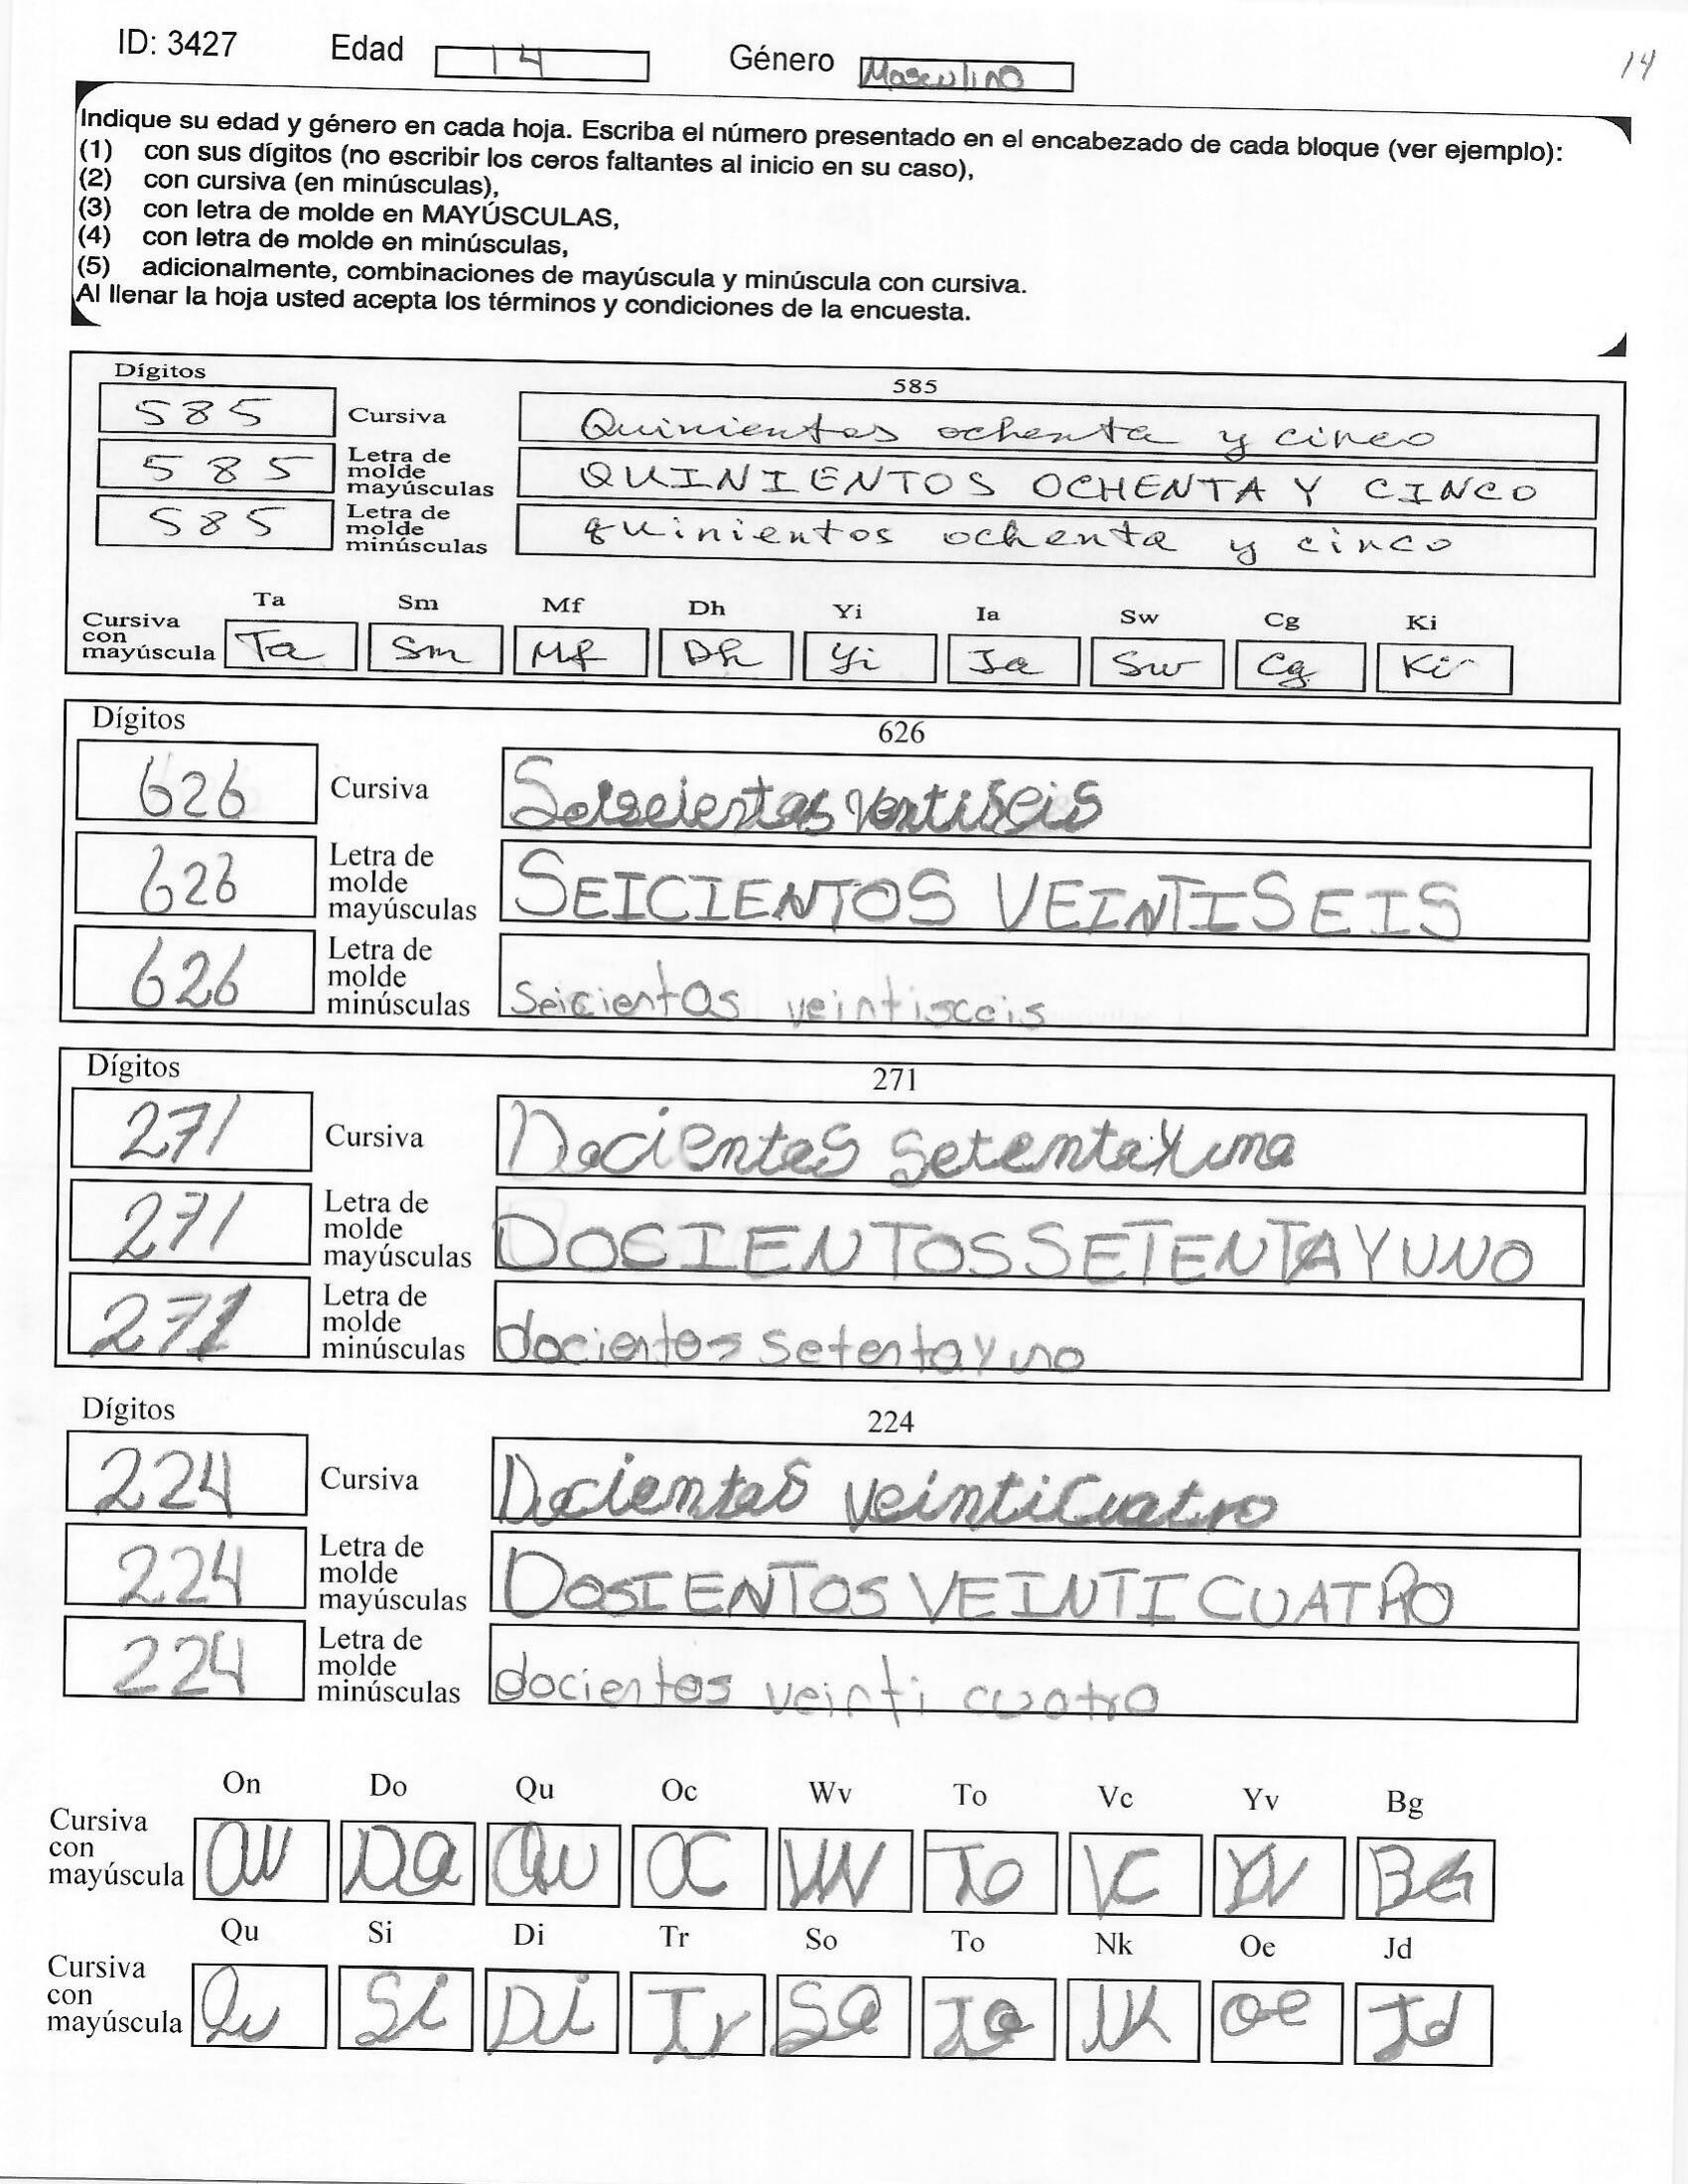 ID: 3427 Edad 14 Género Masculino 14
Indique su edad y género en cada hoja. Escriba el número presentado en el encabezado de cada bloque (ver ejemplo):
(1) con sus dígitos (no escribir los ceros faltantes al inicio en su caso),
(2) con cursiva (en minúsculas),
(3) con letra de molde en MAYÚSCULAS,
(4) con letra de molde en minúsculas,
(5) adicionalmente, combinaciones de mayúscula y minúscula con cursiva.
Al llenar la hoja usted acepta los términos y condiciones de la encuesta.
Dígitos 585
585 Cursiva Quinientos ochenta y cinco
585 Letra de molde mayúsculas QUINIENTOS OCHENTA Y CINCO
585 Letra de molde minúsculas quinientos ochenta y cinco
Ta Sm Mf Dh Yi Ia Sw Cg Ki
Cursiva con mayúscula Ta Sm Mf Dh Yi Ia Sw Cg Ki
Dígitos 626
626 Cursiva
626 Letra de molde mayúsculas SEICIENTOS VEINTISEIS
626 Letra de molde minúsculas seicientos veintisceis
Dígitos 271
271 Cursiva Docientos setentayuno
271 Letra de molde mayúsculas DOCIENTOSSETENTAYUNO
271 Letra de molde minúsculas docientos setentayuno
Dígitos 224
224 Cursiva Docientos veinticuatro
224 Letra de molde mayúsculas DOSIENTOS VEINTICUATRO
224 Letra de molde minúsculas docientos veinti cuatro
On Do Qu Oc Wv To Vc Yv Bg
Cursiva con mayúscula On Do Qu Oc Wv To Vc Yv BG
Qu Si Di Tr So To Nk Oe Jd
Cursiva con mayúscula Qu Si Di Tr So To Nk Oe Jd